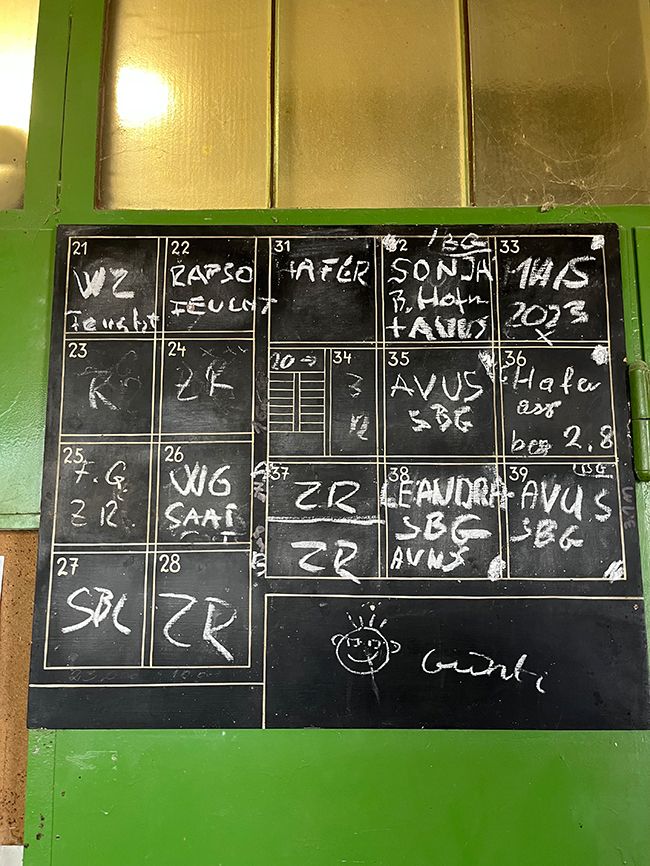 21
WZ
Feucht
22
RAPSO
FEUCHT
31
HAFER
32
SBG
SONJA
B. Hofn
+ AVUS
33
MAIS
2023
X
23
R
24
ZR
20→
34
3
12
35
AVUS
SBG
36
Hafer
ass
bco 2.8
25
F.G
ZR
26
WG
SAAT
37
ZR
ZR
38
LEANDRA
SBG
AVUS
39
SBG
AVUS
SBG
27
SBG
28
ZR
Günti